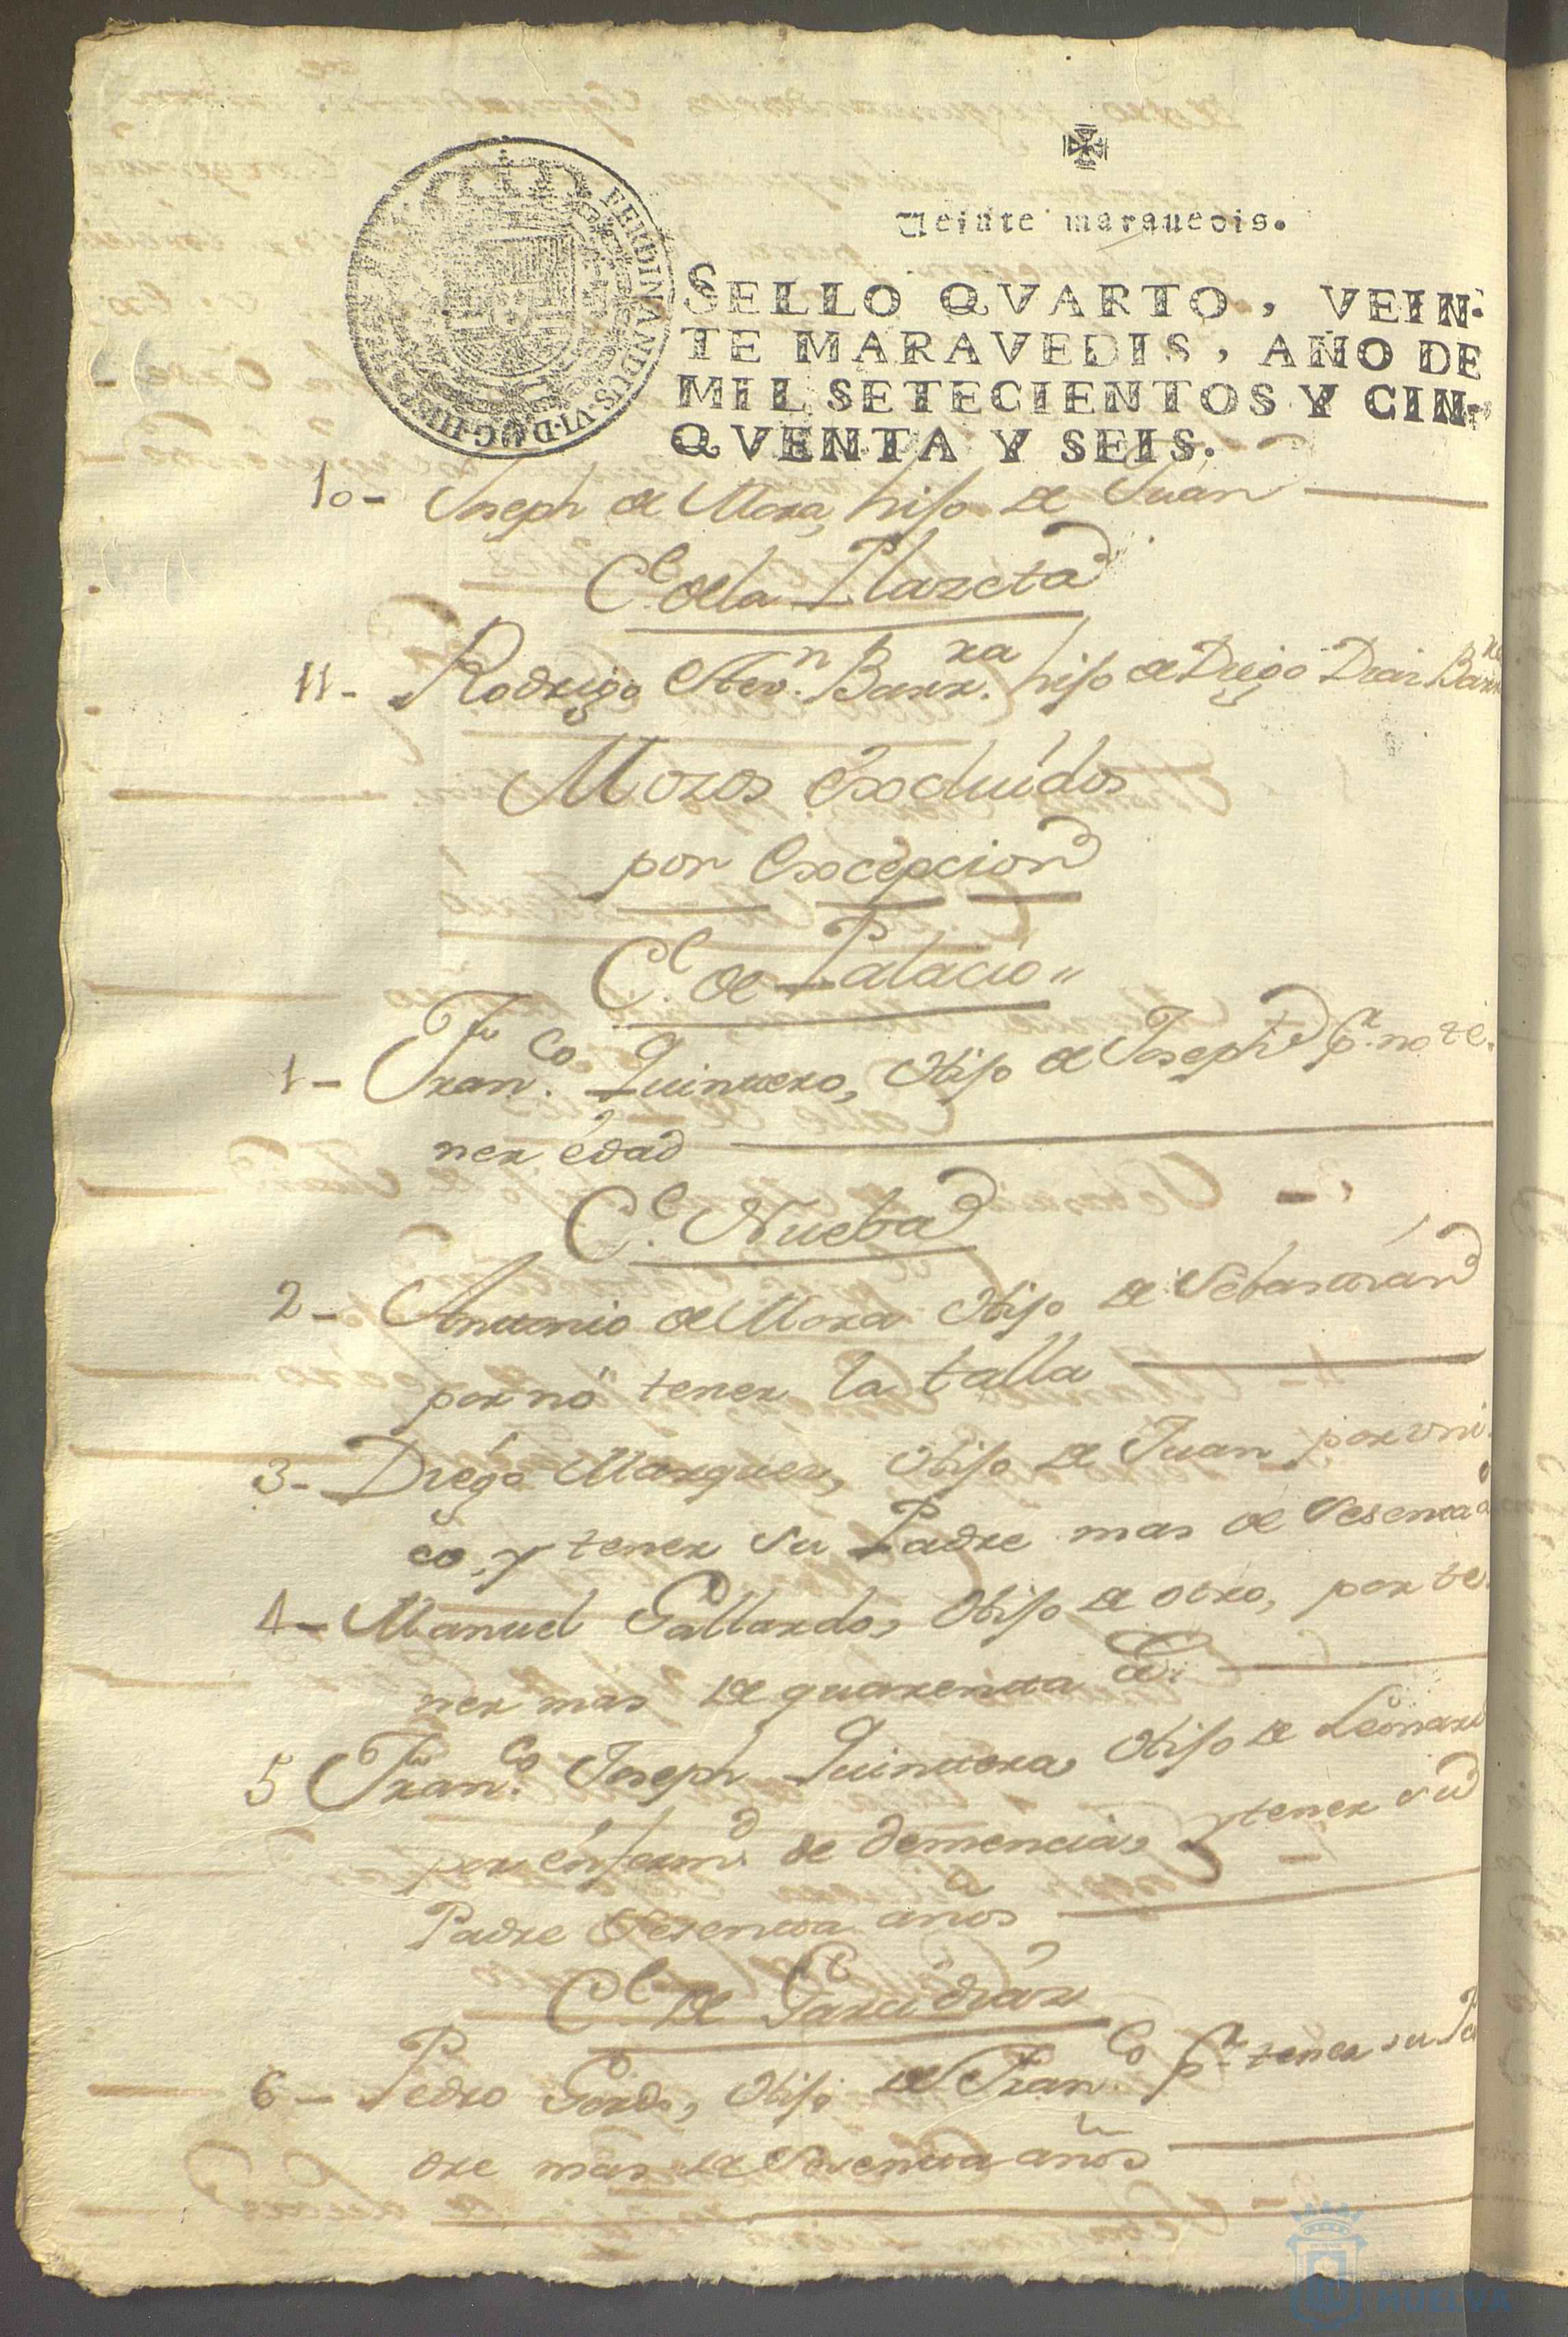 Veinte marauedis.
SELLO QVARTO, VEIN-
TE MARAVEDIS, AÑO DE
MIL SETECIENTOS Y CIN-
QVENTA Y SEIS.
FERDINANDUS·VI·D·G·HISP
10- Joseph de Mora, hijo de Juan
C.e de la Plazeta
11- Rodrigo Barr.ra hijo de Diego Diaz Barr.ra
Mozos Excluidos
por Excepcion
C.l de Palacio
1- Fran.co Quintero, Hijo de Joseph p.r no te-
ner edad
C.e Nueba
2- Antonio de Mora Hijo de Sebastian
por no tener la talla
3- Diego Marquez, Hijo de Juan por uni-
co, y tener su Padre mas de Sesenta a
4- Manuel Gallardo, Hijo de otro, por te-
ner mas de quarenta a.
5 Fran.co Joseph Quintero, Hijo de Leonard
por enferm.d de demencia, y tener su
Padre Sesenta años
C.l de Garcidiaz
6- Pedro Gordo, Hijo de Fran.co p.r tener su Pa
dre mas de Sesenta años
HUELVA